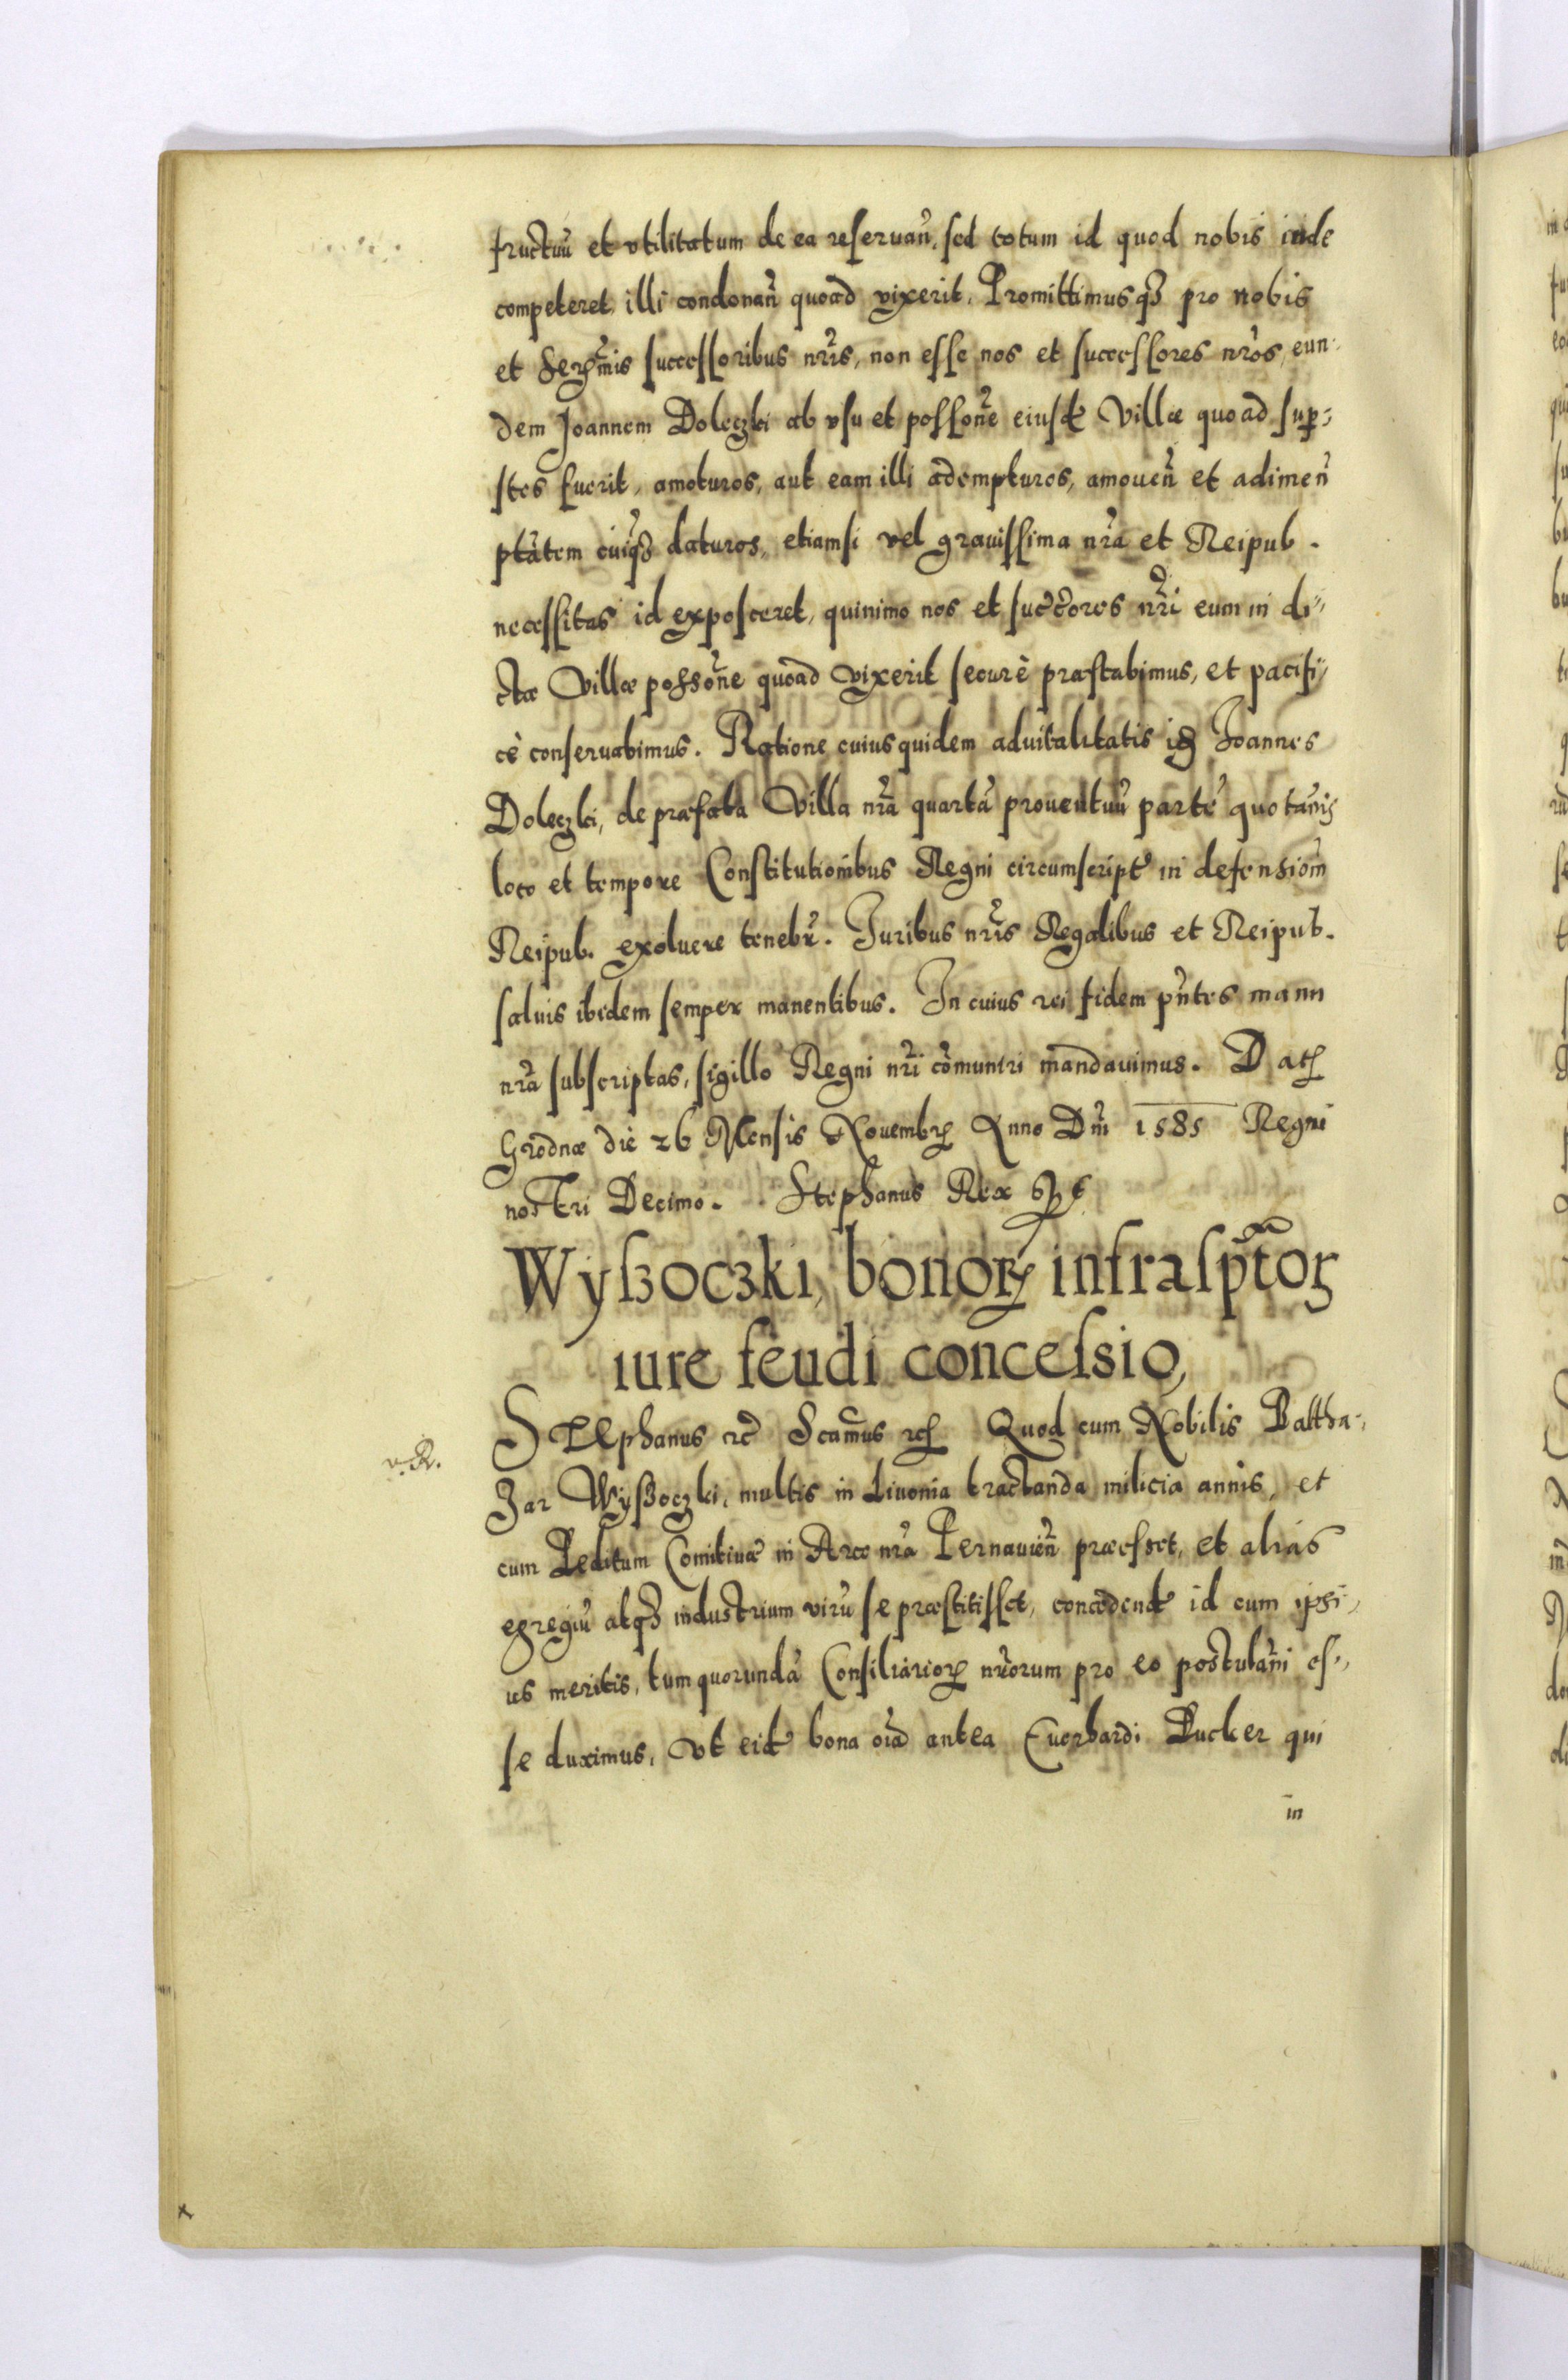 fructuũ et vtilitatum de ea reseruañ, sed totum id quod nobis inde
competeret, illi condonañ quoad vixerit. Promittimusq3 pro nobis
et Serꝫmis successoribus nr̃is, non esse nos et successores nr̃os, eun-
dem Joannem Doleczki ab vsu et possoñe eiusď Villæ quoad suꝑ-
stes fuerit, amoturos, aut eam illi adempturos, amoueñ et adimeñ
ptãtem cuiq3 daturos, etiamsi vel grauissima nr̃a et Reipub.
necessitas id exposceret, quinimo nos et succ̃ores nr̃i eum in di-
ctæ Villæ possoñe quoad vixerit securè præstabimus, et pacifi-
cè conseruabimus. Ratione cuius quidem aduitalitatis iđ Joannes
Doleczki, de præfata Villa nr̃a quartã prouentuũ partẽ quotañis
loco et tempore Constitutionibus Regni circumscript̃ in defensiom̃
Reipub. exoluere tenebr̃. Juribus nr̃is Regalibus et Reipub.
saluis ibidem semper manentibus. In cuius rei fidem pñtes manu
nr̃a subscriptas, sigillo Regni nr̃i cõmuniri mandauimus. Datꝫ
Grodnæ die 26 Mensis Nouembrꝫ Anno Dñi 1585 Regni
nostri Decimo. Stephanus Rex
Wyßoczki, bonorꝫ infrasp̃torꝫ
iure feudi concessio,
v. R.
STEphanus ꝛc̃ Scamus ꝛcꝫ Quod cum Nobilis Baltha-
zar Wyßoczki, multis in Liuonia tractanda milicia annis, et
cum Peditum Comitiuæ in Arce nr̃a Pernauieñ præesset, et alias
egregiũ atq3 industrium virũ se præstitisset, concedend̃ id cum ipsi-
us meritis, tum quorundã Consiliariorꝫ nr̃orum pro eo postulãni es-
se duximus, vt eid̃ bona oĩa antea Euerhardi Ducker qui
in